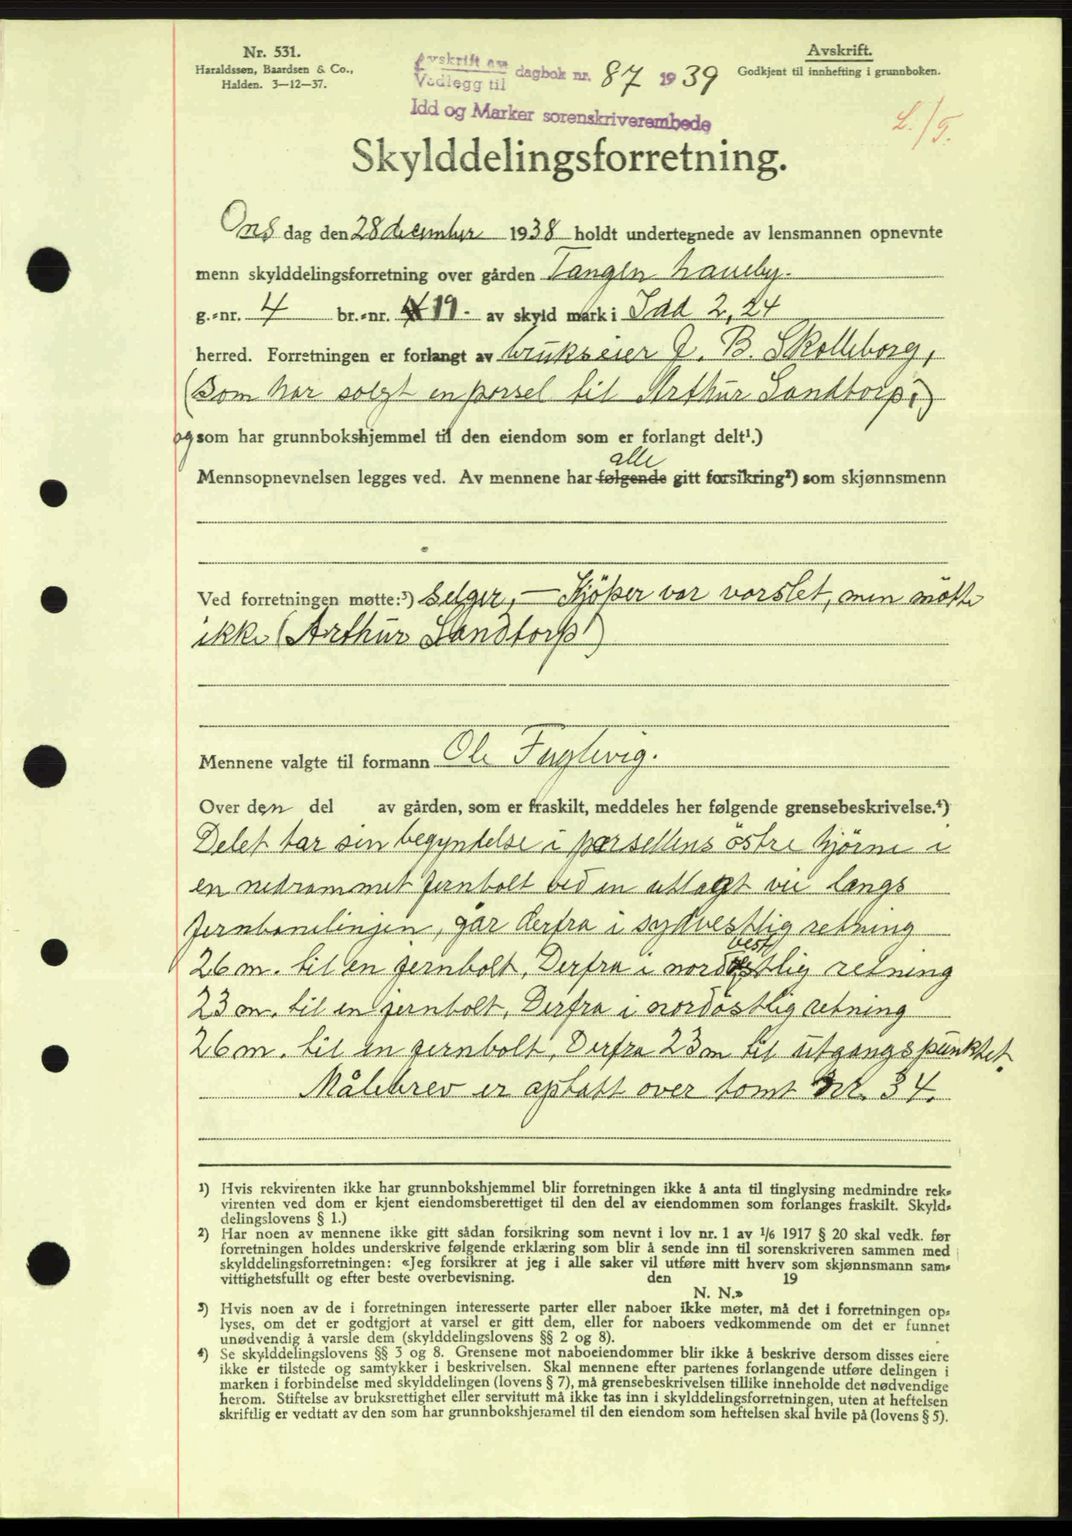 Nr. 531.
Haraldssøn, Baardsen & Co.,
Halden. 3—12—37.
Avskrift av
Vedlegg til dagbok nr. 87 1939
Idd og Marker sorenskriverembede
Avskrift.
Godkjent til innhefting i grunnboken.
L./T.
Skylddelingsforretning.
Onsdag den 28 december 1938 holdt undertegnede av lensmannen opnevnte
menn skylddelingsforretning over gården Tangen
g.-nr. 4 br.-nr. 19. av skyld mark i Idd 2,24
herred. Forretningen er forlangt av brukseier J. B. Skolleborg,
(som har solgt en parsel til Arthur Sandtorp,)
og som har grunnbokshjemmel til den eiendom som er forlangt delt¹.)
Mennsopnevnelsen legges ved. Av mennene har følgende alle gitt forsikring²) som skjønnsmenn
Ved forretningen møtte:³) Selger, — Kjöper var varslet, men mötte
ikke (Arthur Sandtorp)
Mennene valgte til formann Ole Fuglevig.
Over den del av gården, som er fraskilt, meddeles her følgende grensebeskrivelse.⁴)
Delet tar sin begyndelse i parsellens östre hjörne i
en nedrammet jernbolt ved en utlagt vei langs
jernbanelinjen, går derfra i sydvestlig retning
26 m. til en jernbolt, Derfra i nordvestlig retning
23 m. til en jernbolt, Derfra i nordöstlig retning
26 m. til en jernbolt, Derfra 23 m til utgangspunktet.
Målebrev er optatt over tomt Nr. 34.
¹) Hvis rekvirenten ikke har grunnbokshjemmel blir forretningen ikke å anta til tinglysing medmindre rek-
virenten ved dom er kjent eiendomsberettiget til den del av eiendommen som forlanges fraskilt. Skyld-
delingslovens § 1.)
²) Har noen av mennene ikke gitt sådan forsikring som nevnt i lov nr. 1 av 1/6 1917 § 20 skal vedk. før
forretningen holdes underskrive følgende erklæring som blir å sende inn til sorenskriveren sammen med
skylddelingsforretningen: «Jeg forsikrer at jeg i alle saker vil utføre mitt hverv som skjønnsmann sam-
vittighetsfullt og efter beste overbevisning. den 19
N. N.»
³) Hvis noen av de i forretningen interesserte parter eller naboer ikke møter, må det i forretningen op-
lyses, om det er godtgjort at varsel er gitt dem, eller for naboers vedkommende om det er funnet
unødvendig å varsle dem (skylddelingslovens §§ 2 og 8).
⁴) Se skylddelingslovens §§ 3 og 8. Grensene mot naboeiendommer blir ikke å beskrive dersom disses eiere
ikke er tilstede og samtykker i beskrivelsen. Skal mennene efter partenes forlangende utføre delingen i
marken i forbindelse med skylddelingen (lovens § 7), må grensebeskrivelsen tillike inneholde det nødvendige
herom. Stiftelse av bruksrettighet eller servitutt må ikke tas inn i skylddelingsforretningen, uten at heftelsen
skriftlig er vedtatt av den som har grunnbokshjemmel til den eiendom som heftelsen skal hvile på (lovens § 5).